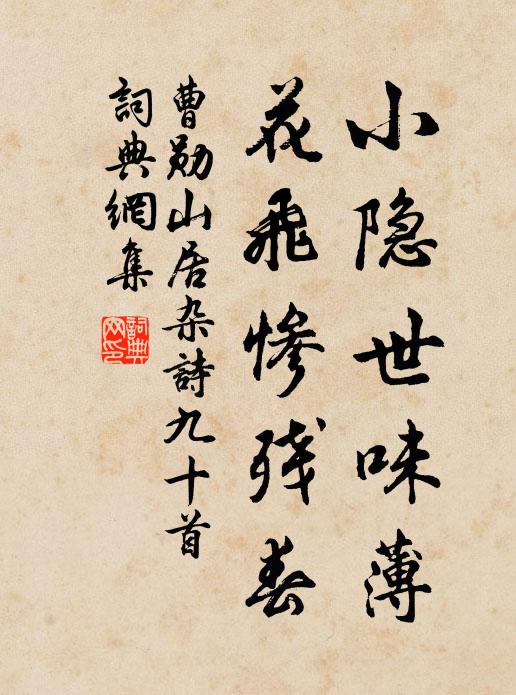 小隐世味薄
花飛惨残春
曹勛山居杂詩九十首
詞典網集
詞典網印